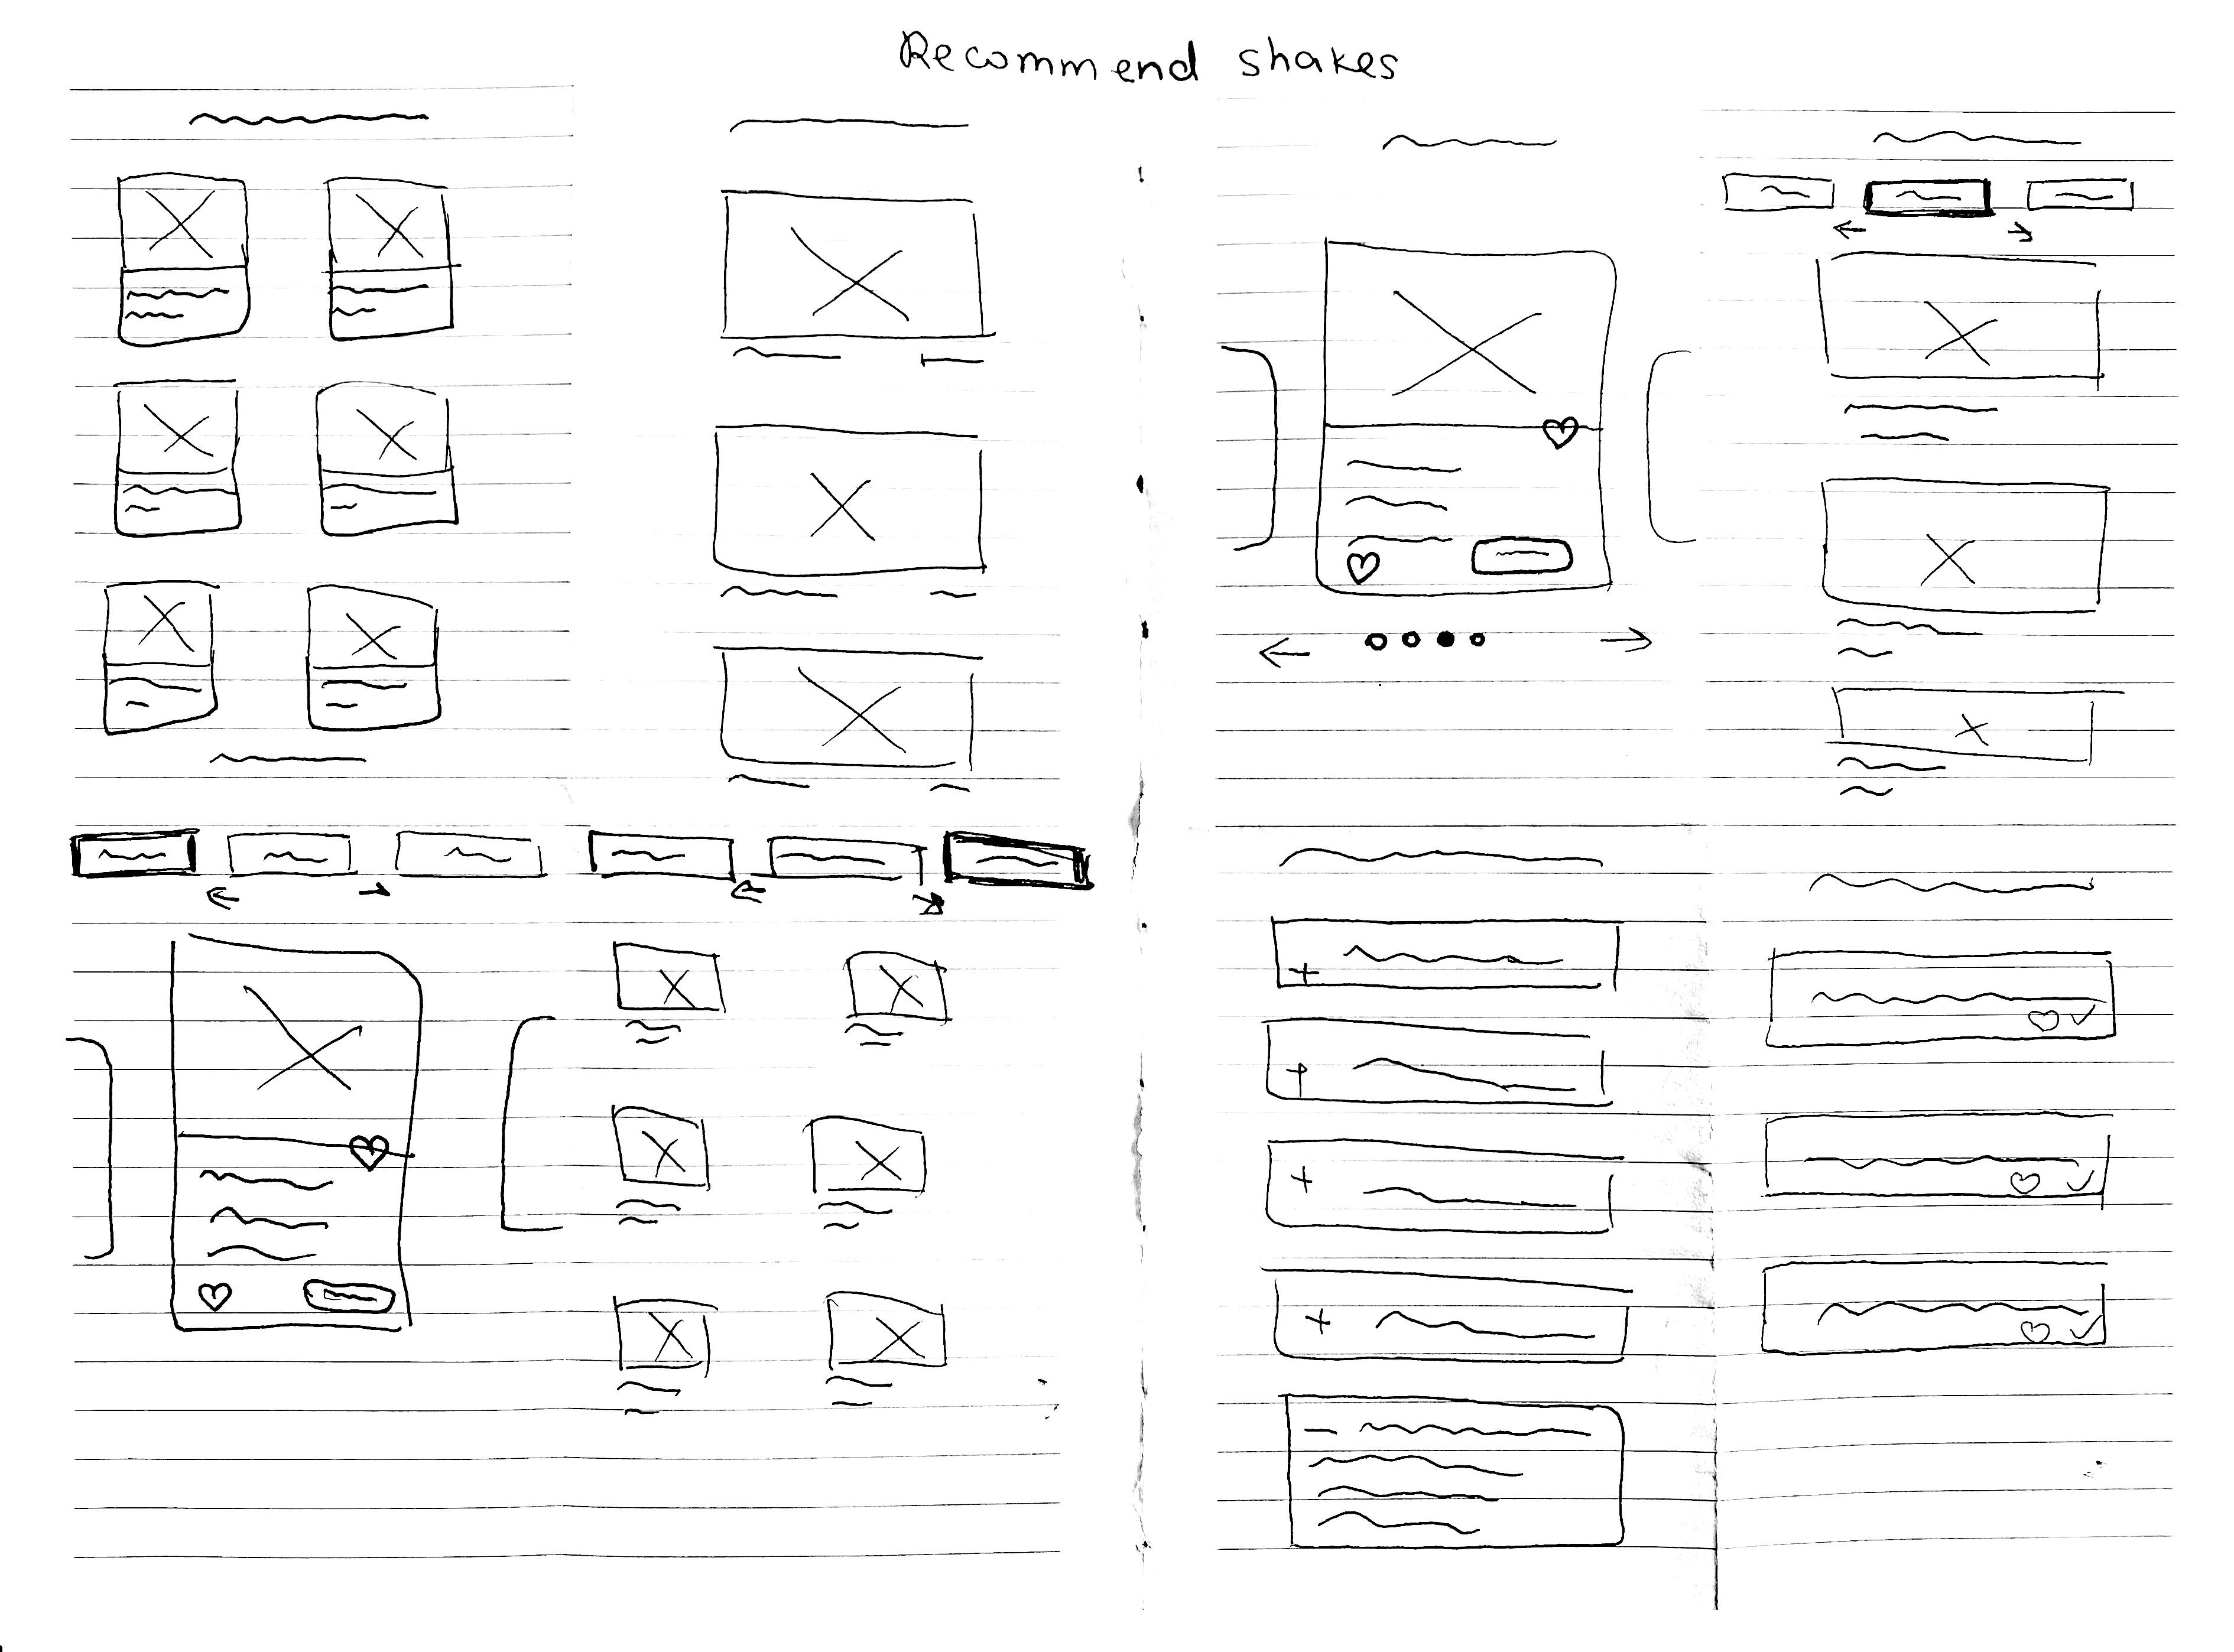 Recommend shakes